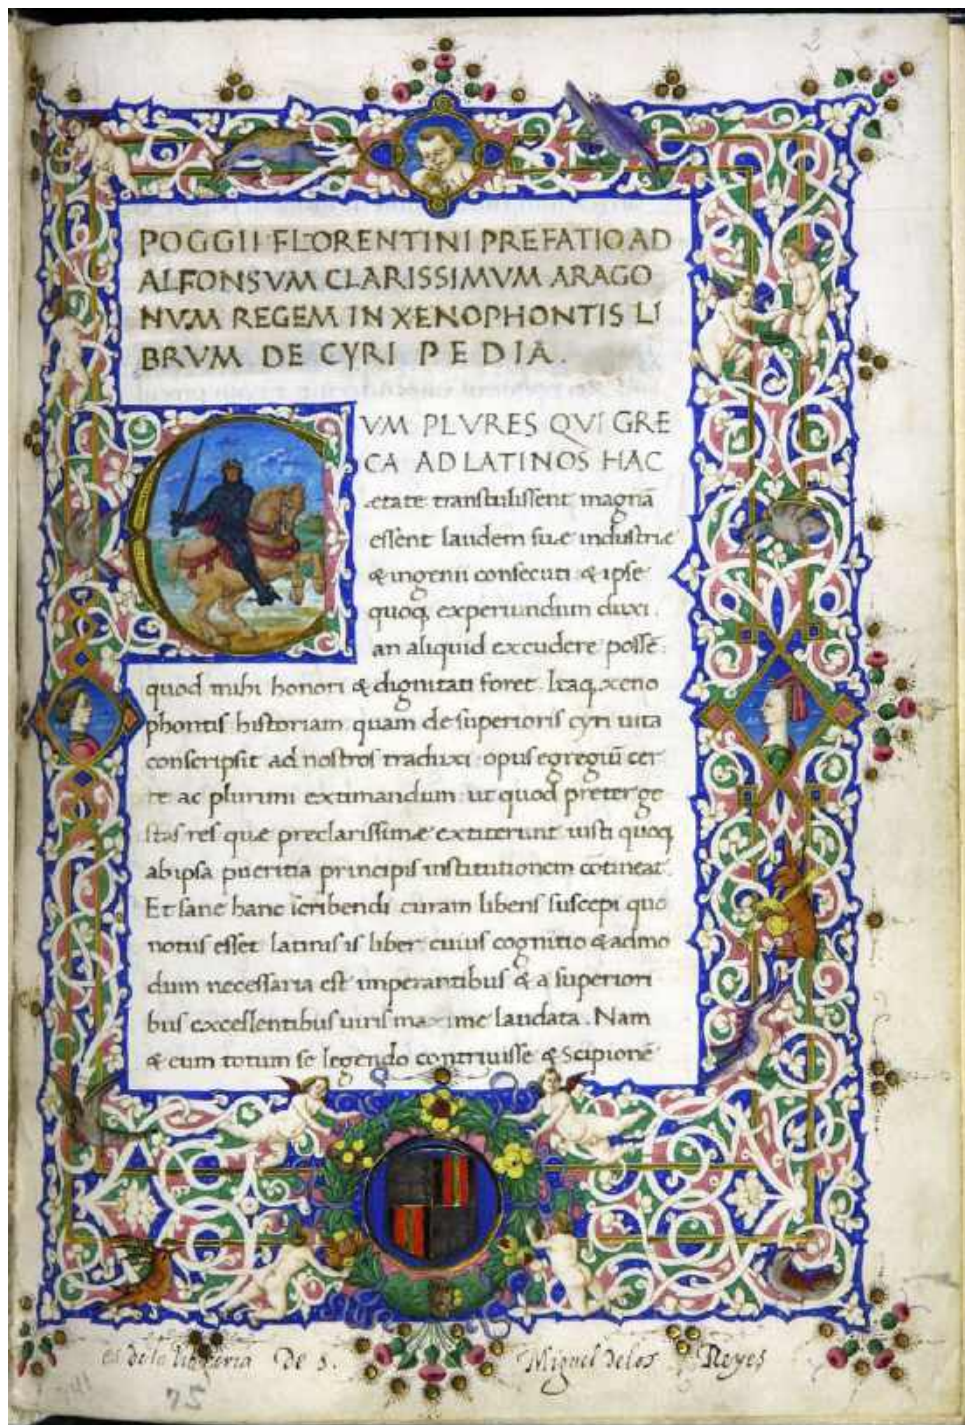 POGGII FLORENTINI PREFATIO AD
ALFONSVM CLARISSIMVM ARAGO
NVM REGEM IN XENOPHONTIS LI
BRVM DE CYRI PEDIA.
CVM PLVRES QVI GRE
CA AD LATINOS HAC
etate transtulissent magnā
essent laudem suæ industriæ
& ingenii consecuti & ipse
quoq; experiundum duxi.
an aliquid excudere posse
quod mihi honori & dignitati foret. Itaq; xeno
phontis historiam quam de superioris cyri uita
conscripsit ad nostros traduxi: opus egregiū cer
te ac plurimi extimandum: ut quod preter ge
stas res quæ preclarissimæ extiterunt iusti quoq;
ab ipsa pueritia principis institutionem cōtineat.
Et sane hanc scribendi curam libens suscepi quo
notus esset latinis is liber cuius cognitio & admo
dum necessaria est imperantibus & a superiori
bus excellentibus uiris maxime laudata. Nam
& eum totum se legendo contriuisse & Scipionē
es de la libreria De S. Miguel de los Reyes
75